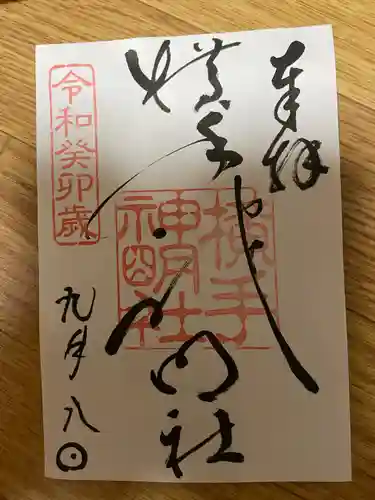 奉拝
横手
神明社
横手
神明社
令和癸卯歳
九月八